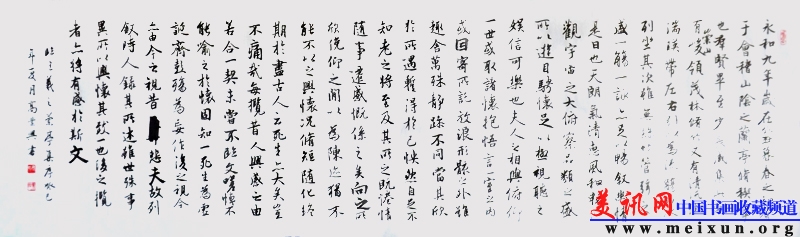 永和九年歲在癸丑暮春之
于會稽山陰之蘭亭脩禊
也羣賢畢至少長咸
有崇山峻領茂林脩竹又有清流
湍暎帶左右引以為流觴
列坐其次雖無絲竹管弦
盛一觴一詠亦足以暢敘幽情
是日也天朗氣清惠風和暢
觀宇宙之大俯察品類之盛
所以遊目騁懷足以極視聽之
娛信可樂也夫人之相與俯仰
一世或取諸懷抱悟言一室之內
或因寄所託放浪形骸之外雖
趣舍萬殊靜躁不同當其欣
於所遇暫得於己快然自足不
知老之將至及其所之既惓情
隨事遷感慨係之矣向之所
欣俛仰之閒以為陳迹猶不
能不以之興懷況脩短隨化終
期於盡古人云死生亦大矣豈
不痛哉每攬昔人興感之由
若合一契未嘗不臨文嗟悼不
能喻之於懷固知一死生為虛
誕齊彭殤為妄作後之視今
亦由今之視昔悲夫故列
敘時人錄其所述雖世殊事
異所以興懷其致一也後之攬
者亦將有感於斯文
臨王羲之蘭亭序
美讯网 中国书画收藏频道
www.meixun.org